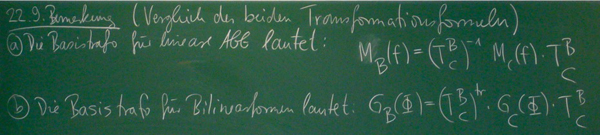 22.9. Bemerkung (Vergleich der beiden Transformationsformeln)
(a) Die Basistrafo für lineare Abb lautet: M_B(f) = (T^B_C)^{-1} M_C(f) · T^B_C
(b) Die Basistrafo für Bilinearformen lautet: G_B(Φ) = (T^B_C)^{tr} · G_C(Φ) · T^B_C